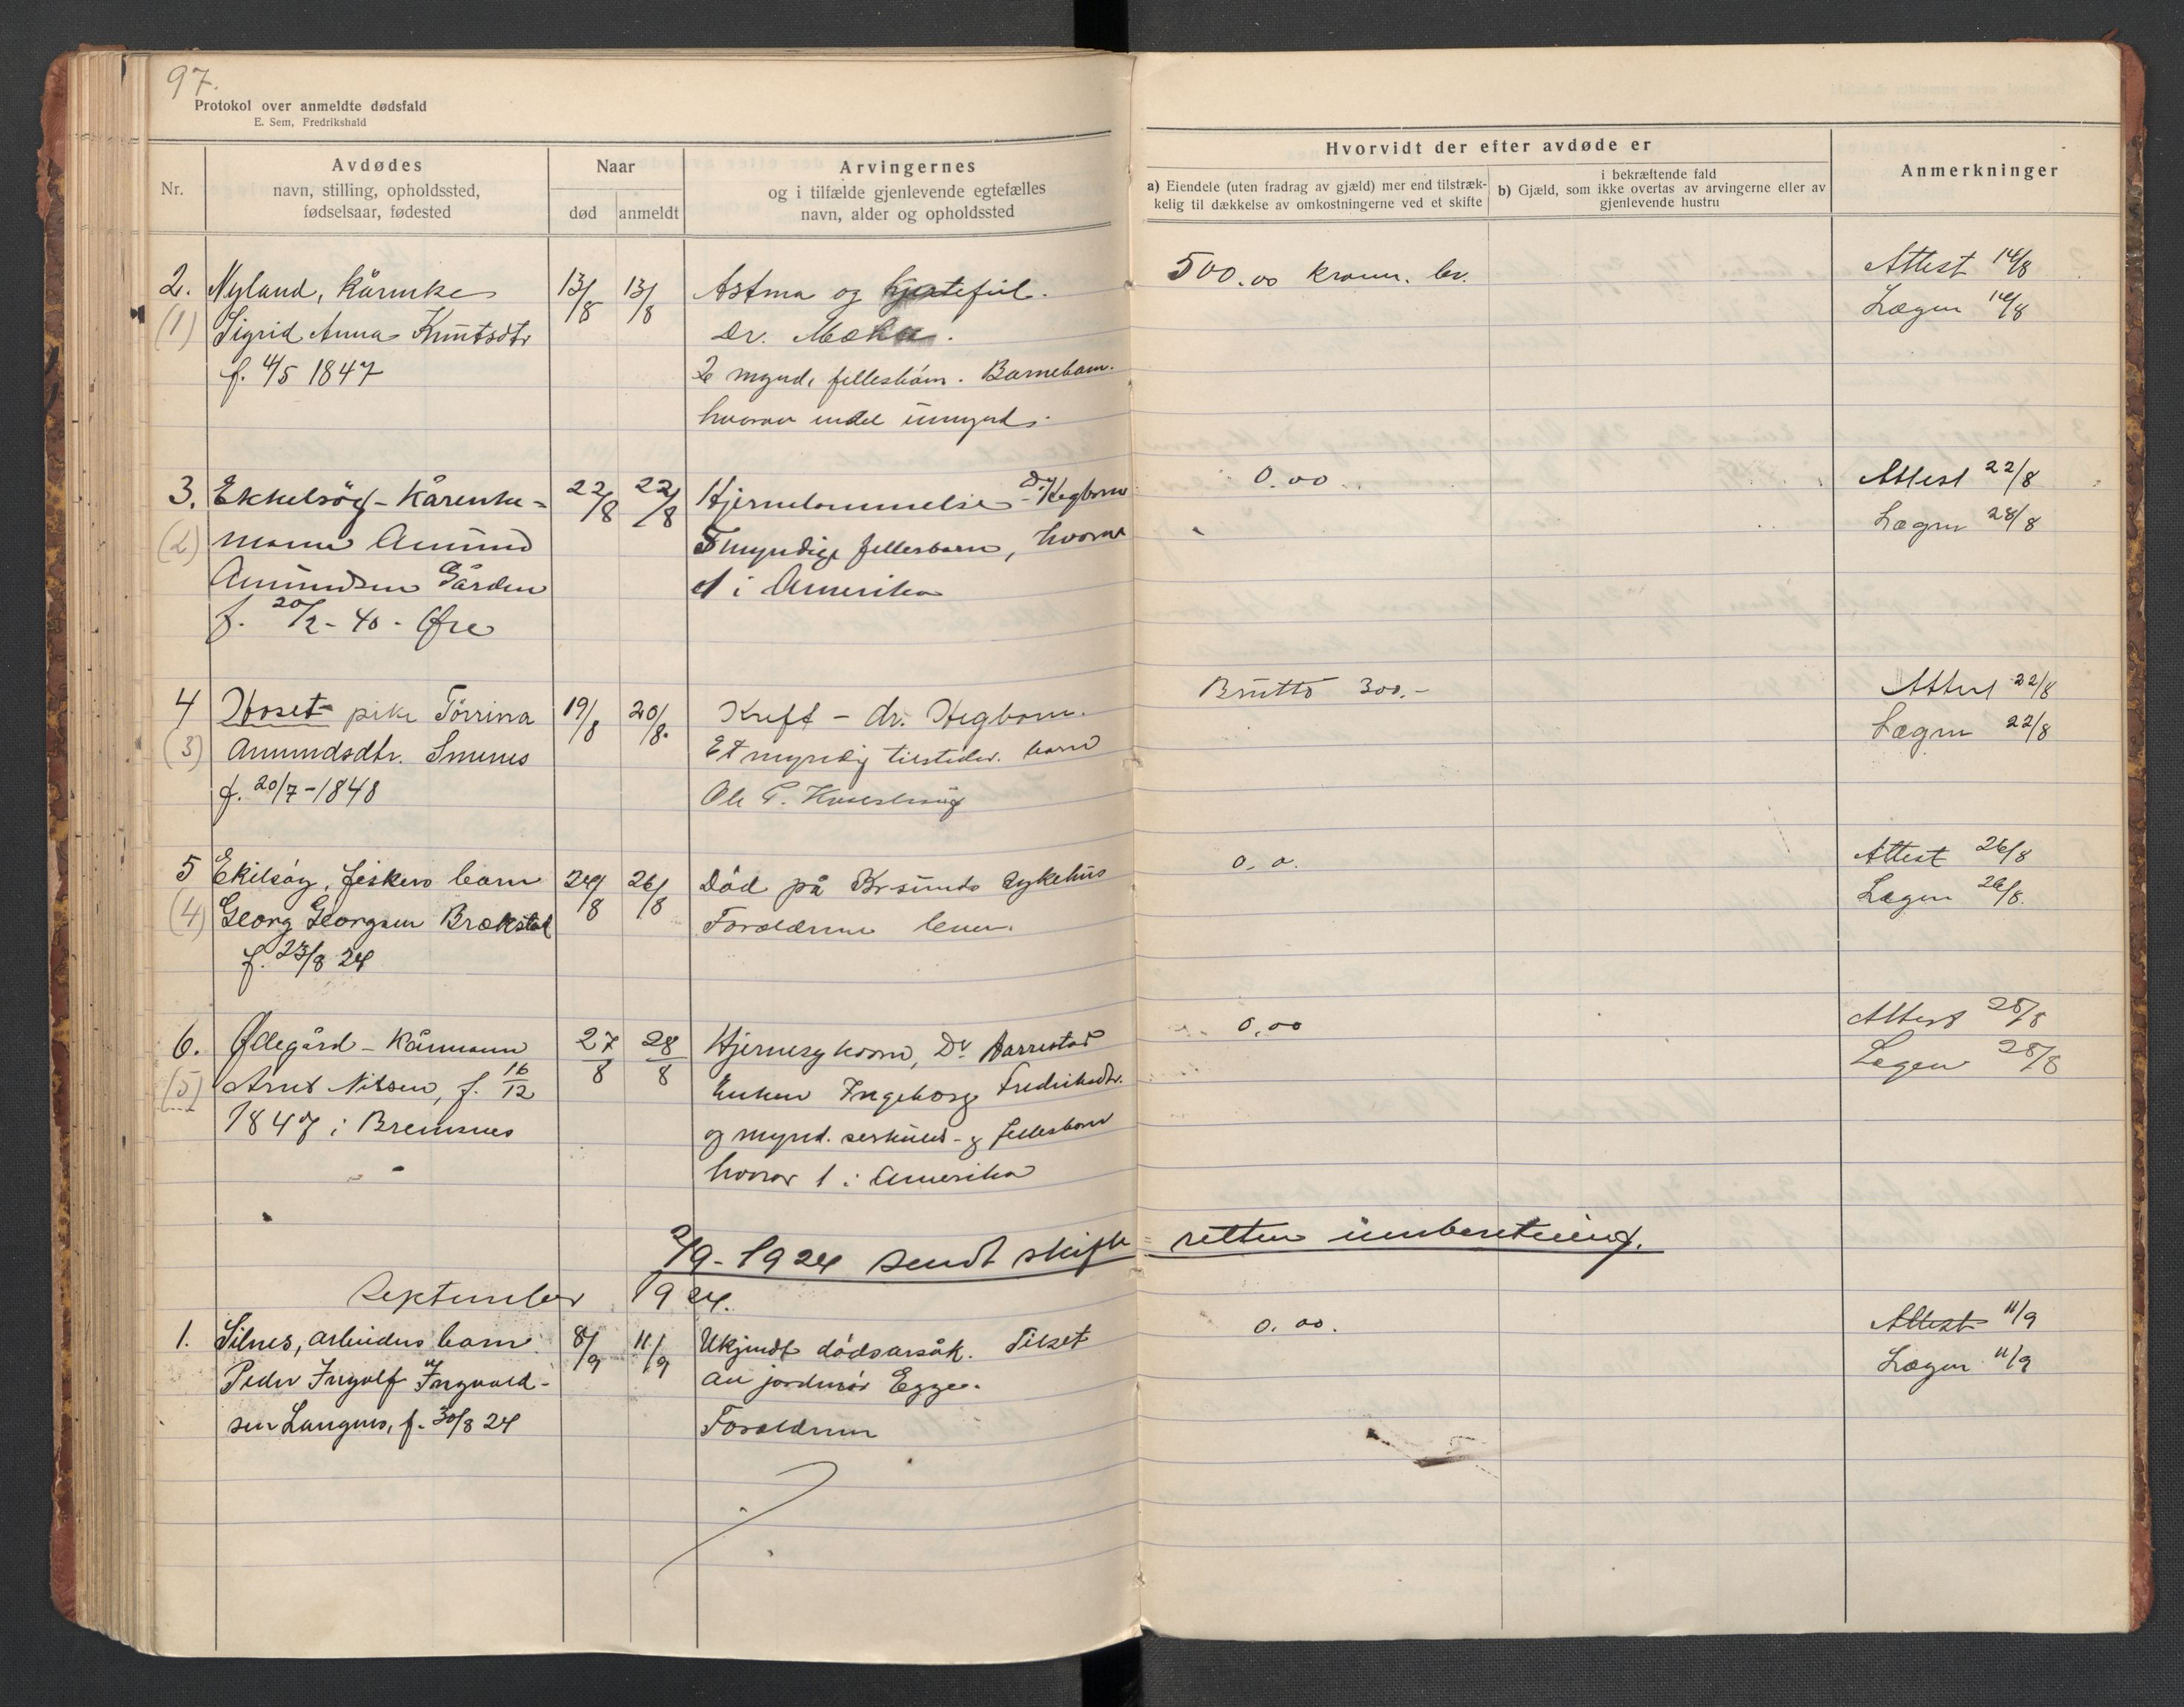 97.
Protokol over anmeldte dødsfald
E. Sem, Fredrikshald
Nr.
Avdødes
navn, stilling, opholdssted,
fødselsaar, fødested
Naar
død
anmeldt
Arvingernes
og i tilfælde gjenlevende egtefælles
navn, alder og opholdssted
Hvorvidt der efter avdøde er
a) Eiendele (uten fradrag av gjæld) mer end tilstræk-
kelig til dækkelse av omkostningerne ved et skifte
i bekræftende fald
b) Gjæld, som ikke overtas av arvingerne eller av
gjenlevende hustru
Anmerkninger
2. Nyland, kårenke 13/8 13/8 Astma og hjertefeil. 500.00 kroner. br. Attest 14/8
(1) Sigrid Anna Knutsdtr Dr. Lægen 14/8
f. 4/5 1847 2 mynd. fellesbarn. Barnebarn.
hvorav endel umynd.
3. Ekkelsøy - Kårenke- 22/8 22/8 Hjernebetennelse Dr. Hegbom 0.00 Attest 22/8
(2) mann Amund 5 myndige fellesbarn, hvorav Lægen 28/8
Amundsen Gården 1 i Amerika
f. 20/2 - 40 - Øre
4 Hoset pike Törrina 19/8 20/8. Kreft - dr. Hegbom. Brutto 300.- Attest 22/8
(3) Amundsdtr. Smenes Et myndig tilstedev. barn Lægen 22/8
f. 20/7 - 1848 Ole P.
5 Ekilsøy, fiskers barn 24/8 26/8 Död på Kr.sunds sykehus 0.0. Attest 26/8
(4) Georg Georgsen Brækstad Forældrene lever. Lægen 26/8.
f. 23/8 24
6. Ødegård - Kårmann 27/8 28/8 Hjernesykdom, Dr Aarrestad 0,00 Attest 28/8
(5) Arnt Nilsen, f. 16/12 Enken Ingeborg Fredriksdtr. Legen 28/8
1847 i Bremsnes og mynd. særkuld- og fellesbarn
hvorav 1 i Amerika
2/9 - 1924 sendt skifte-retten innberetning.
September 1924.
1. Silnes, arbeiders barn 8/9 11/9 Ukjendt dödsarsåk. Tilset 0.00. Attest 11/9
Peder Ingolf Ingvald- av jordmór Egge. Lægen 11/9
sen Langnes, f. 30/8 24 Forældrene